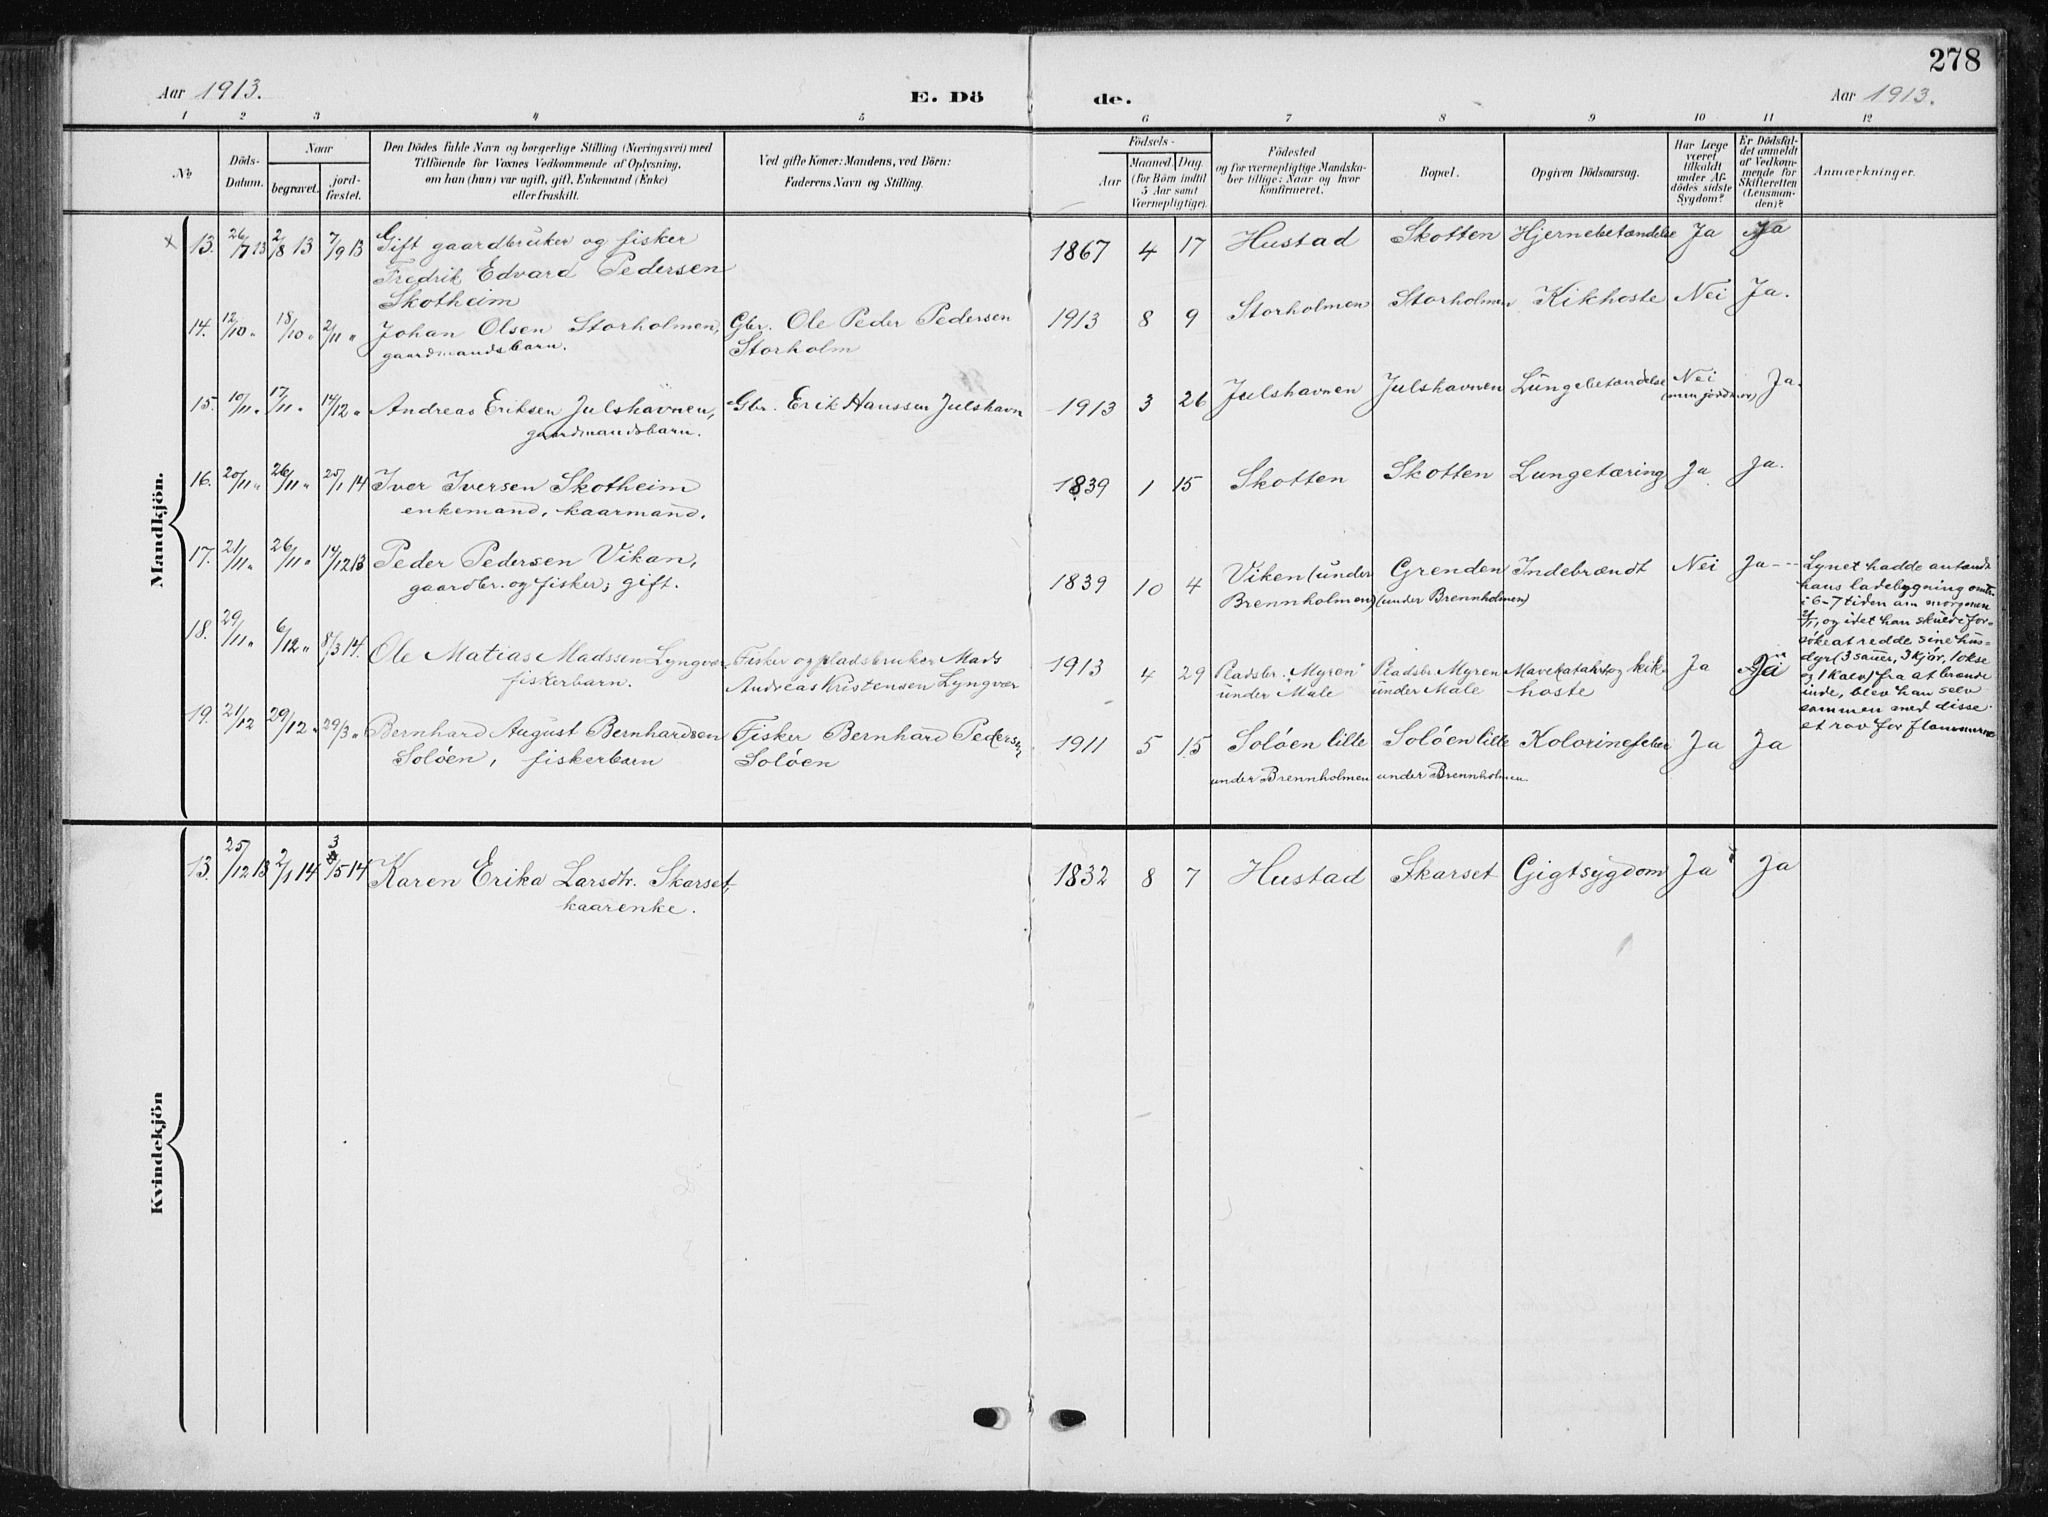 278
Aar 1913. E. Dö de. Aar 1913.
1 2 3 4 5 6 7 8 9 10 11 12
No
Döds-Datum.
Naar
begravet.
jord-fæstet.
Den Dödes fulde Navn og borgerlige Stilling (Næringsvei) med
Tilföiende for Voxnes Vedkommende af Oplysning,
om han (hun) var ugift, gift, Enkemand (Enke)
eller fraskilt.
Ved gifte Koner: Mandens, ved Börn:
Faderens Navn og Stilling.
Födsels-
Aar
Maaned. Dag.
(for Börn indtil
5 Aar samt
Værnepligtige).
Födested
og for værnepligtige Mandska-
ber tillige: Naar og hvor
konfirmeret.
Bopæl.
Opgiven Dödsaarsag.
Har Læge
været
tilkaldt
under Af-
dödes sidste
Sygdom?
Er Dödsfal-
det anmeldt
af Vedkom-
mende for
Skifteretten
(Lensman-
den)?
Anmærkninger.
Mandkjön.
x 13. 26/7 13 2/8 13 7/9 13 Gift gaardbruker og fisker
Fredrik Edvard Pedersen
Skotheim
1867 4 17 Hustad Skotten Hjernebetændelse Ja Ja
14. 12/10 " 18/10 " 2/11 " Johan Olsen Storholmen,
gaardmandsbarn.
Gbr. Ole Peder Pedersen
Storholm
1913 8 9 Storholmen Storholmen Kikhoste Nei Ja.
15. 10/11 " 17/11 " 14/12 " Andreas Eriksen Julshavnen,
gaardmandsbarn.
Gbr. Erik Hanssen Julshavn
1913 3 26 Julshavnen Julshavnen Lungebetændelse Nei
(men jordmor) Ja.
16. 20/11 " 26/11 " 25/1 14 Iver Iversen Skotheim
enkemand, kaarmand.
1839 1 15 Skotten Skotten Lungetæring Ja Ja.
17. 21/11 " 26/11 " 14/12 13 Peder Pedersen Vikan,
gaardbr. og fisker; gift.
1839 10 4 Viken (under
Brennholmen)
Grenden
(under Brennholmen)
Indebrændt Nei Ja --
Lynet hadde antændt
hans ladebygning omtr.
i 6-7 tiden om morgenen
21/11, og idet han skulde for-
søke at redde sine hus-
dyr (3 sauer, 3 kjør, 1 okse
og 1 kalv) fra at brænde
inde, blev han selv
sammen med disse
et rov for flammerne
18. 29/11 " 6/12 " 8/3 14. Ole Matias Madssen Lyngvær
fiskerbarn.
Fisker og pladsbruker Mads
Andreas Kristensen Lyngvær
1913 4 29 Pladsbr. Myren
under Male
Pladsbr Myren
under Male
Mavekatahr og kik-
hoste
Ja Ja
19. 21/12 29/12 " 29/3 " Bernhard August Bernhardsen
Soløen, fiskerbarn
Fisker Bernhard Pedersen
Soløen
1911 5 15 Soløen lille
under Brennholmen
Soløen lille
under Brennholmen.
Kolorinefeber Ja Ja
Kvindekjön
13. 25/12 13 2/1 14 3/5 14 Karen Erika Larsdtr. Skarset
kaarenke.
1832 8 7 Hustad Skarset Gigtsygdom Ja Ja